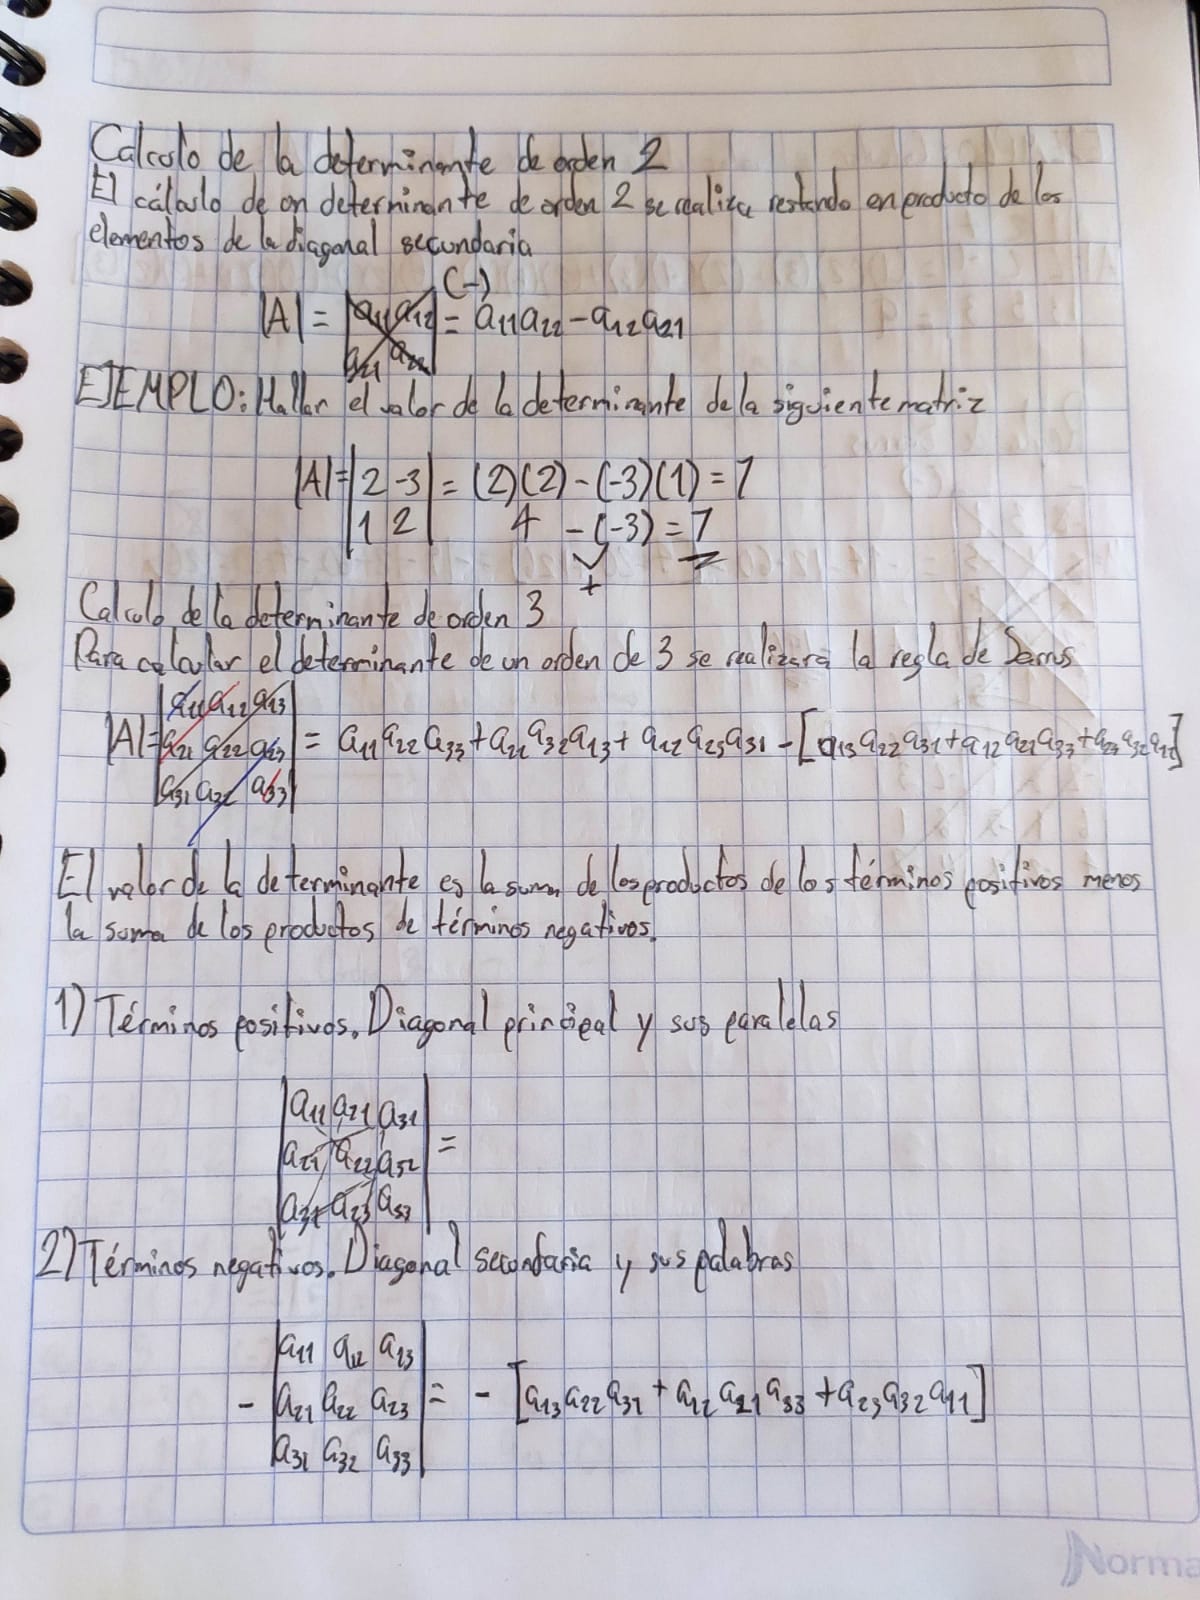 Calculo de la determinante de orden 2
El cálculo de un determinante de orden 2 se realiza restando en producto de los
elementos de la diagonal secundaria
(-)
|A| = |a11 a12| = a11a22 - a12a21
|a21 a22|
EJEMPLO: Hallar el valor de la determinante de la siguiente matriz
|A| = |2 -3| = (2)(2) - (-3)(1) = 7
|1 2| 4 - (-3) = 7
+
Calculo de la determinante de orden 3
Para calcular el determinante de un orden de 3 se realizara la regla de Sarrus
|a11 a12 a13|
|A| = |a21 a22 a23| = a11 a22 a33 + a21 a32 a13 + a12 a23 a31 - [a13 a22 a31 + a12 a21 a33 + a23 a32 a11]
|a31 a32 a33|
El valor de la determinante es la suma de los productos de los términos positivos menos
la suma de los productos de términos negativos.
1) Términos positivos. Diagonal principal y sus paralelas
|a11 a21 a31|
|a21 a22 a32| =
|a31 a23 a33|
2) Términos negativos. Diagonal secundaria y sus palabras
|a11 a12 a13|
- |a21 a22 a23| = - [a13 a22 a31 + a12 a21 a33 + a23 a32 a11]
|a31 a32 a33|
Norma